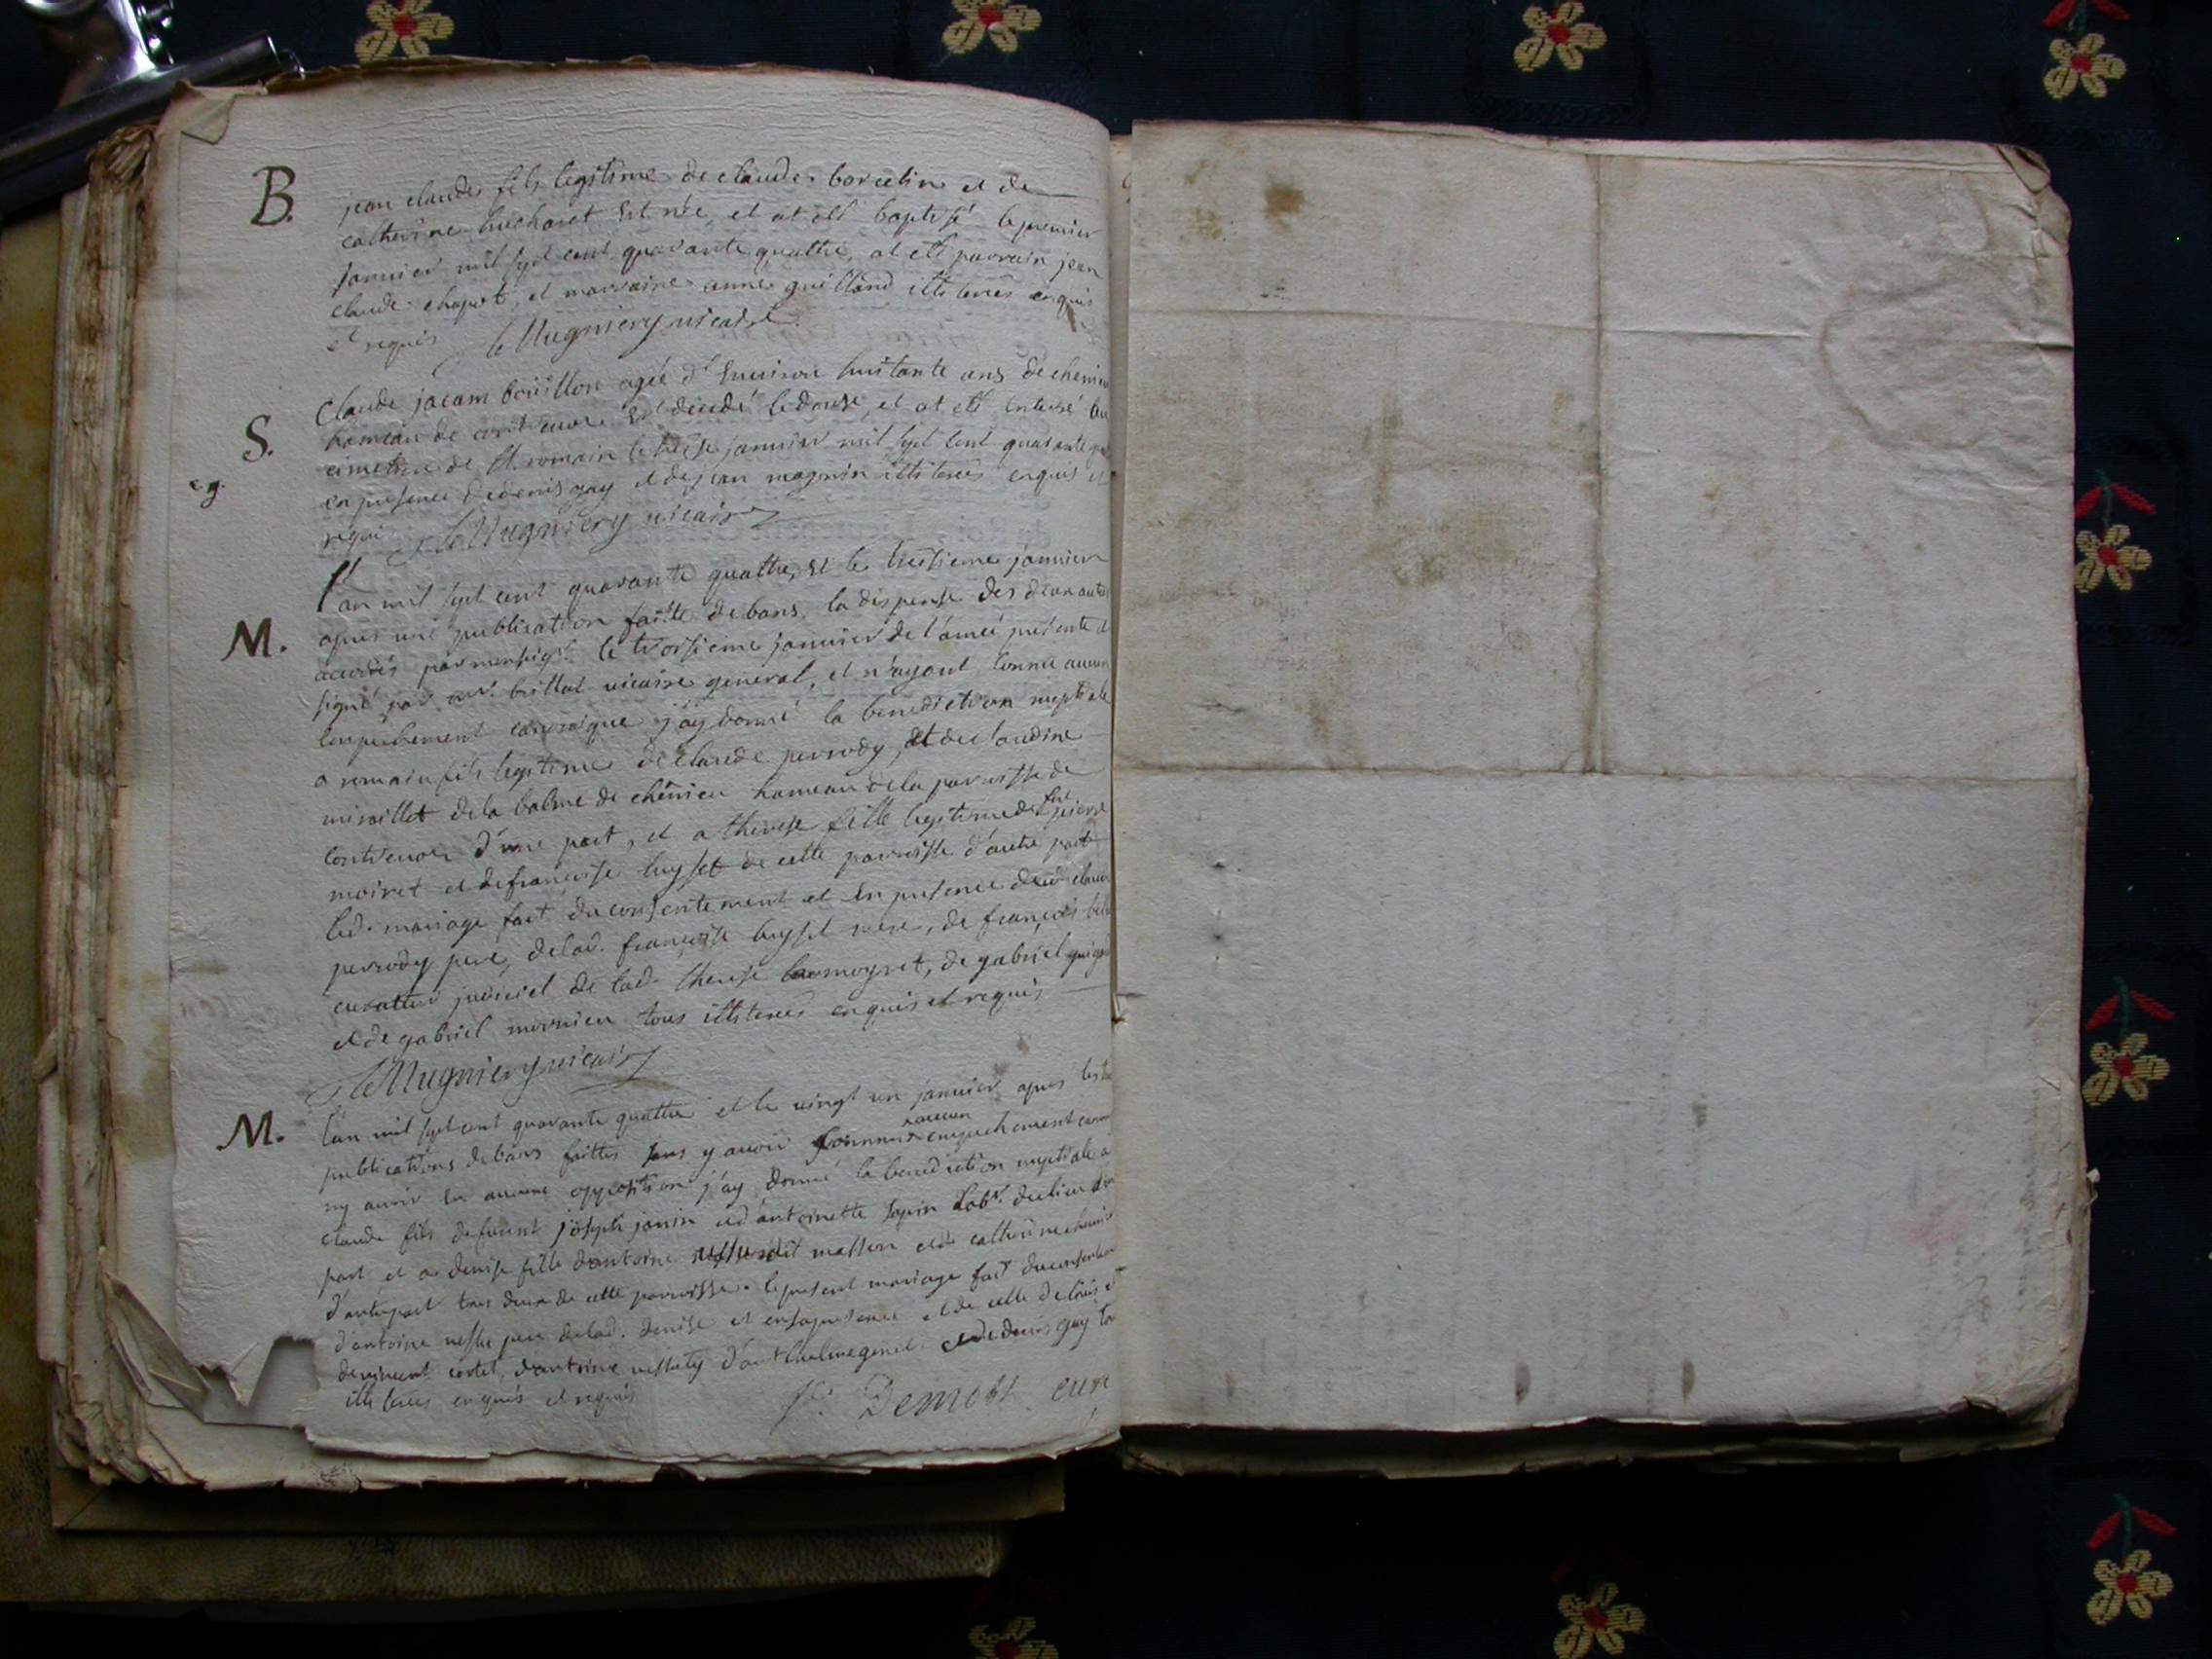 B. jean claude fils legitime de claude borcelin et de
catherine hucharet Est née, et at esté baptisé le premier
janvier mil sept cent quarante quattre, at esté parrain jean
claude chapot, et marraine anne guilland illiterés enquis
et requis Le Mugniery vicaire
S. Claude jacam bouillon agée d'Environ huitante ans de chenieu
hameau de contrevoz Est decedé le douse, et at esté Enterré
cimetiere de St romain le treise janvier mil sept cent quarante
en presence de denis gay et de jean magnin illiterés enquis et
requis Le Mugniery vicaire
M. l'an mil sept cent quarante quattre, Et le huitieme janvier
apres une publication faitte de bans, la dispense des deux autres
accordés par monsigr. le troisieme janvier de l'année presente et
signé par mr. brillat vicaire general, et n'ayant connu aucun
Empechement canonique j'ay donné la benediction nuptiale
a romain fils legitime de claude perrody, et de claudine
miraillet de la balme de chenieu hameau de la parroisse de
contrevoz d'une part, et a therese fille legitime de feu pierre
moiret et de françoise luyset de cette parroisse d'autre part
led. mariage fait du consentement et En presence dud claude
perrody pere, de lad. françoise luyset mere, de françois
curatteur juridiciel de lad. therese moyret, de gabriel
et de gabriel mornieu tous illiterés enquis et requis
Le Mugniery vicaire
M. L'an mil sept cent quarante quattre et le vingt un janvier apres les
publications de bans faittes sans y avoir connu aucun empechement
ny avoir eu aucune opposition j'ay donné la benediction nuptiale a
claude fils de feu joseph janin et d'antoinette sapin Labr. du lieu
part et a denise fille d'antoine masson et de catherine
d'autrepart tous deux de cette parroisse. le present mariage fait du
d'antoine pere de lad. denise et en sa presence et de celle de louis
de vincent d'antoine et de denis gay
illiterés enquis et requis Demott curé